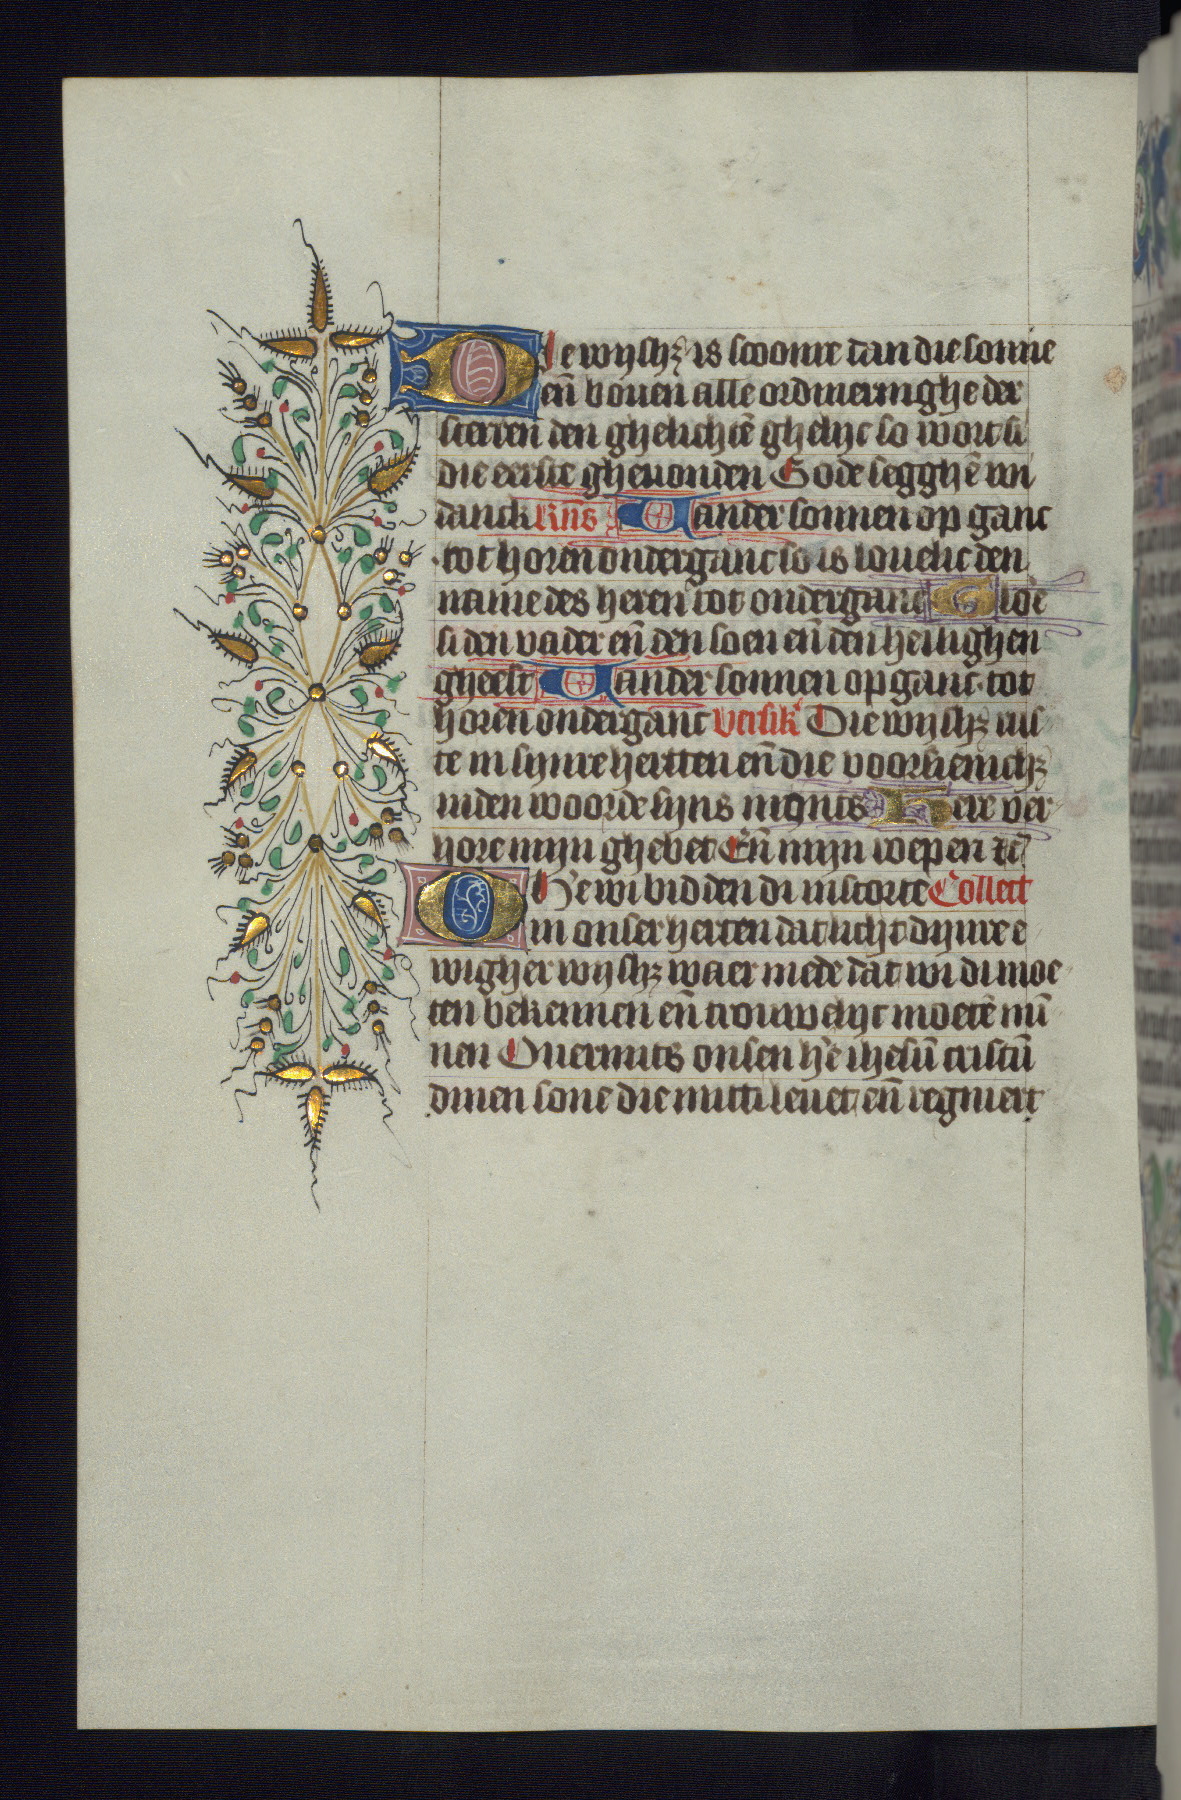 Die wijshʒ is scoonre dan die sonne
eñ bouen alle ordineringhe der
sterren den ghelichtē ghelijc so wort si
die eerste gheuonden Gode segghē wi
danck Rñs Uander sonnen op ganc
tot horen onderganc so is louelic den
name des heren tot onderganc Gloē
si den vader eñ den soen eñ den heilighen
gheest Uander sonnen opganc tot
horen onderganc versikᷣ Die wijshʒ rus
te in synre hertten eñ die voorsienichʒ
inden woorde sijns monts Here ver
hore mijn ghebet Eñ mijn roepen ⁊cͤ
He wi bidden di instorte Collect
in onser herten dat licht dijnre e
wigher wijshʒ waer mede dat wi di moe
ten bekennen eñ trouwelijc moetē mū
nen Ouermits onsen hē ihesū cristū
dinen sone die mitti leuet eñ regniert